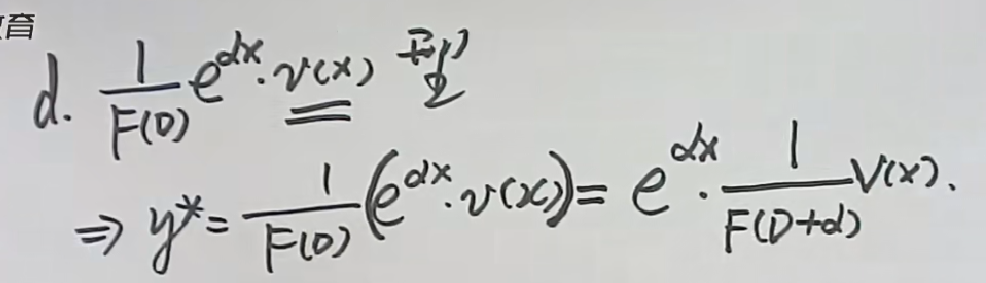 育
d. \frac{1}{F(D)} e^{αx}·v(x) 型
⇒ y* = \frac{1}{F(D)} (e^{αx}·v(x)) = e^{αx}·\frac{1}{F(D+α)} v(x).